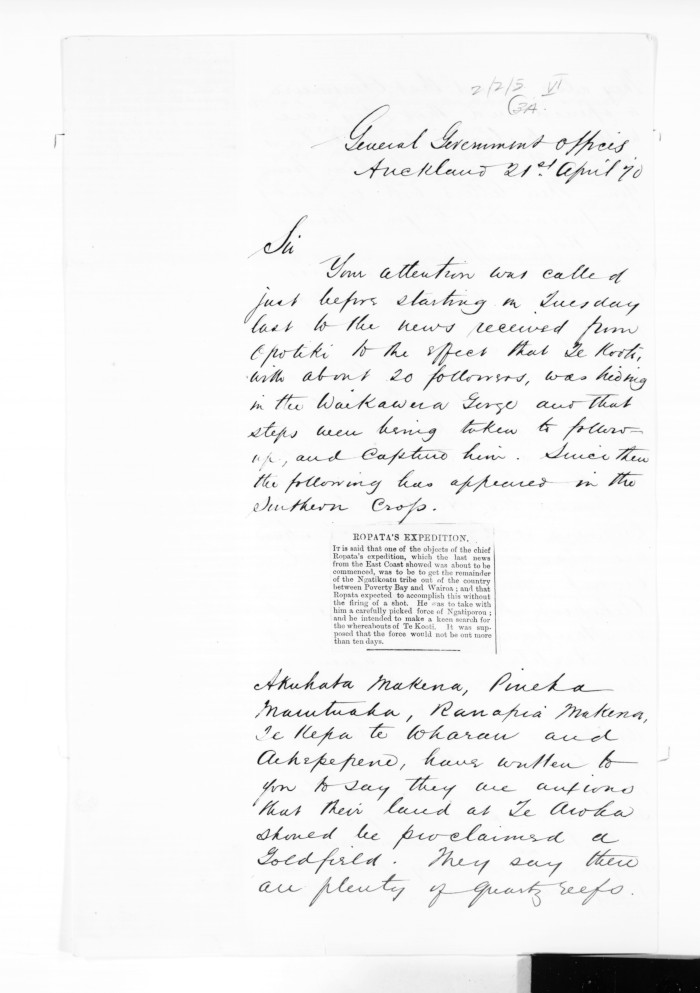 2/2/5 VI
3A.
General Government Offices
Auckland 21st April 70
Sir
Your attention was called
just before starting on Tuesday
last to the news received from
Opotiki to the effect that Te Kooti,
with about 20 followers, was hiding
in the Waikawera Gorge and that
steps were being taken to follow-
up, and capture him. Since then
the following has appeared in the
Southern Cross.
ROPATA'S EXPEDITION.
IT is said that one of the objects of the chief
Ropata's expedition, which the last news
from the East Coast showed was about to be
commenced, was to be to get the remainder
of the Ngatikoatu tribe out of the country
between Poverty Bay and Wairoa; and that
Ropata expected to accomplish this without
the firing of a shot. He was to take with
him a carefully picked force of Ngatiporou;
and he intended to make a keen search for
the whereabouts of Te Kooti. It was sup-
posed that the force would not be out more
than ten days.
Akuhata Makena, Pineha
Marutuaha, Ranapia Makena,
Te Kepa te Wharau and
Aihepepene, have written to
you to say they are anxious
that their land at Te Aroha
should be proclaimed a
Goldfield. They say there
are plenty of quartz reefs.